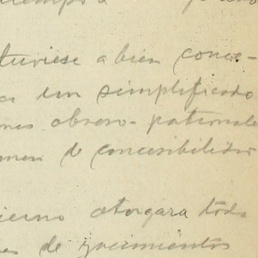 tuviese a bien conce-
un simplificado
nes obrero-patronale
men de concesibilidad
ierno otorgara toda
es de yacimientos